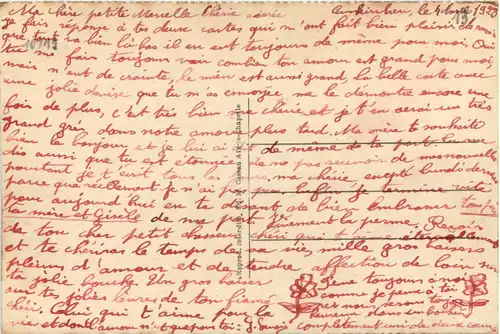 Ma chère petite Marcelle Chérie adorée
le 4 Mars 19
Je fais réponse à tes deux cartes qui m'ont fait bien plaisir de voir
que tout va bien là bas il en est toujours de même pour moi.
tu me fais toujours voir combien ton amour est grand pour moi,
mais n'ent de crainte, le mien est aussi grand, la belle carte avec
une jolie danse que tu m'as envoyée me le démontre encore une
fois de plus, c'est très bien ma chérie et je t'en aurai un très
grand gré dans notre amour plus tard. Ma mère te souhaite
bien le bonjour et je lui ai dit de même de ta part tu me
dis aussi que tu est étonnée de ne pas recevoir de mes nouvelles
pourtant je t'écrit tous les jours, ma chérie excepté lundi dernier
parce que réellement je n'ai pas pu. Enfin je termine
pour aujourd'hui en te disant de bien embrasser
ta mère et Gisèle de ma part
la perme. Reçois
de ton cher petit
et te chérissant le temps de ma vie, mille gros baisers
pleines d'amour et de tendre affection de loin sur
ta jolie bouche. Un gros baiser
sur tes jolies lèvres de ton fiancé
chéri. Celui qui t'aime pour la
vie et dont l'amour n'est que pour toi
Pense toujours à moi
comme je pense à toi
et nous serons toujours
heureux dans un bonheur
complètement à nous deux